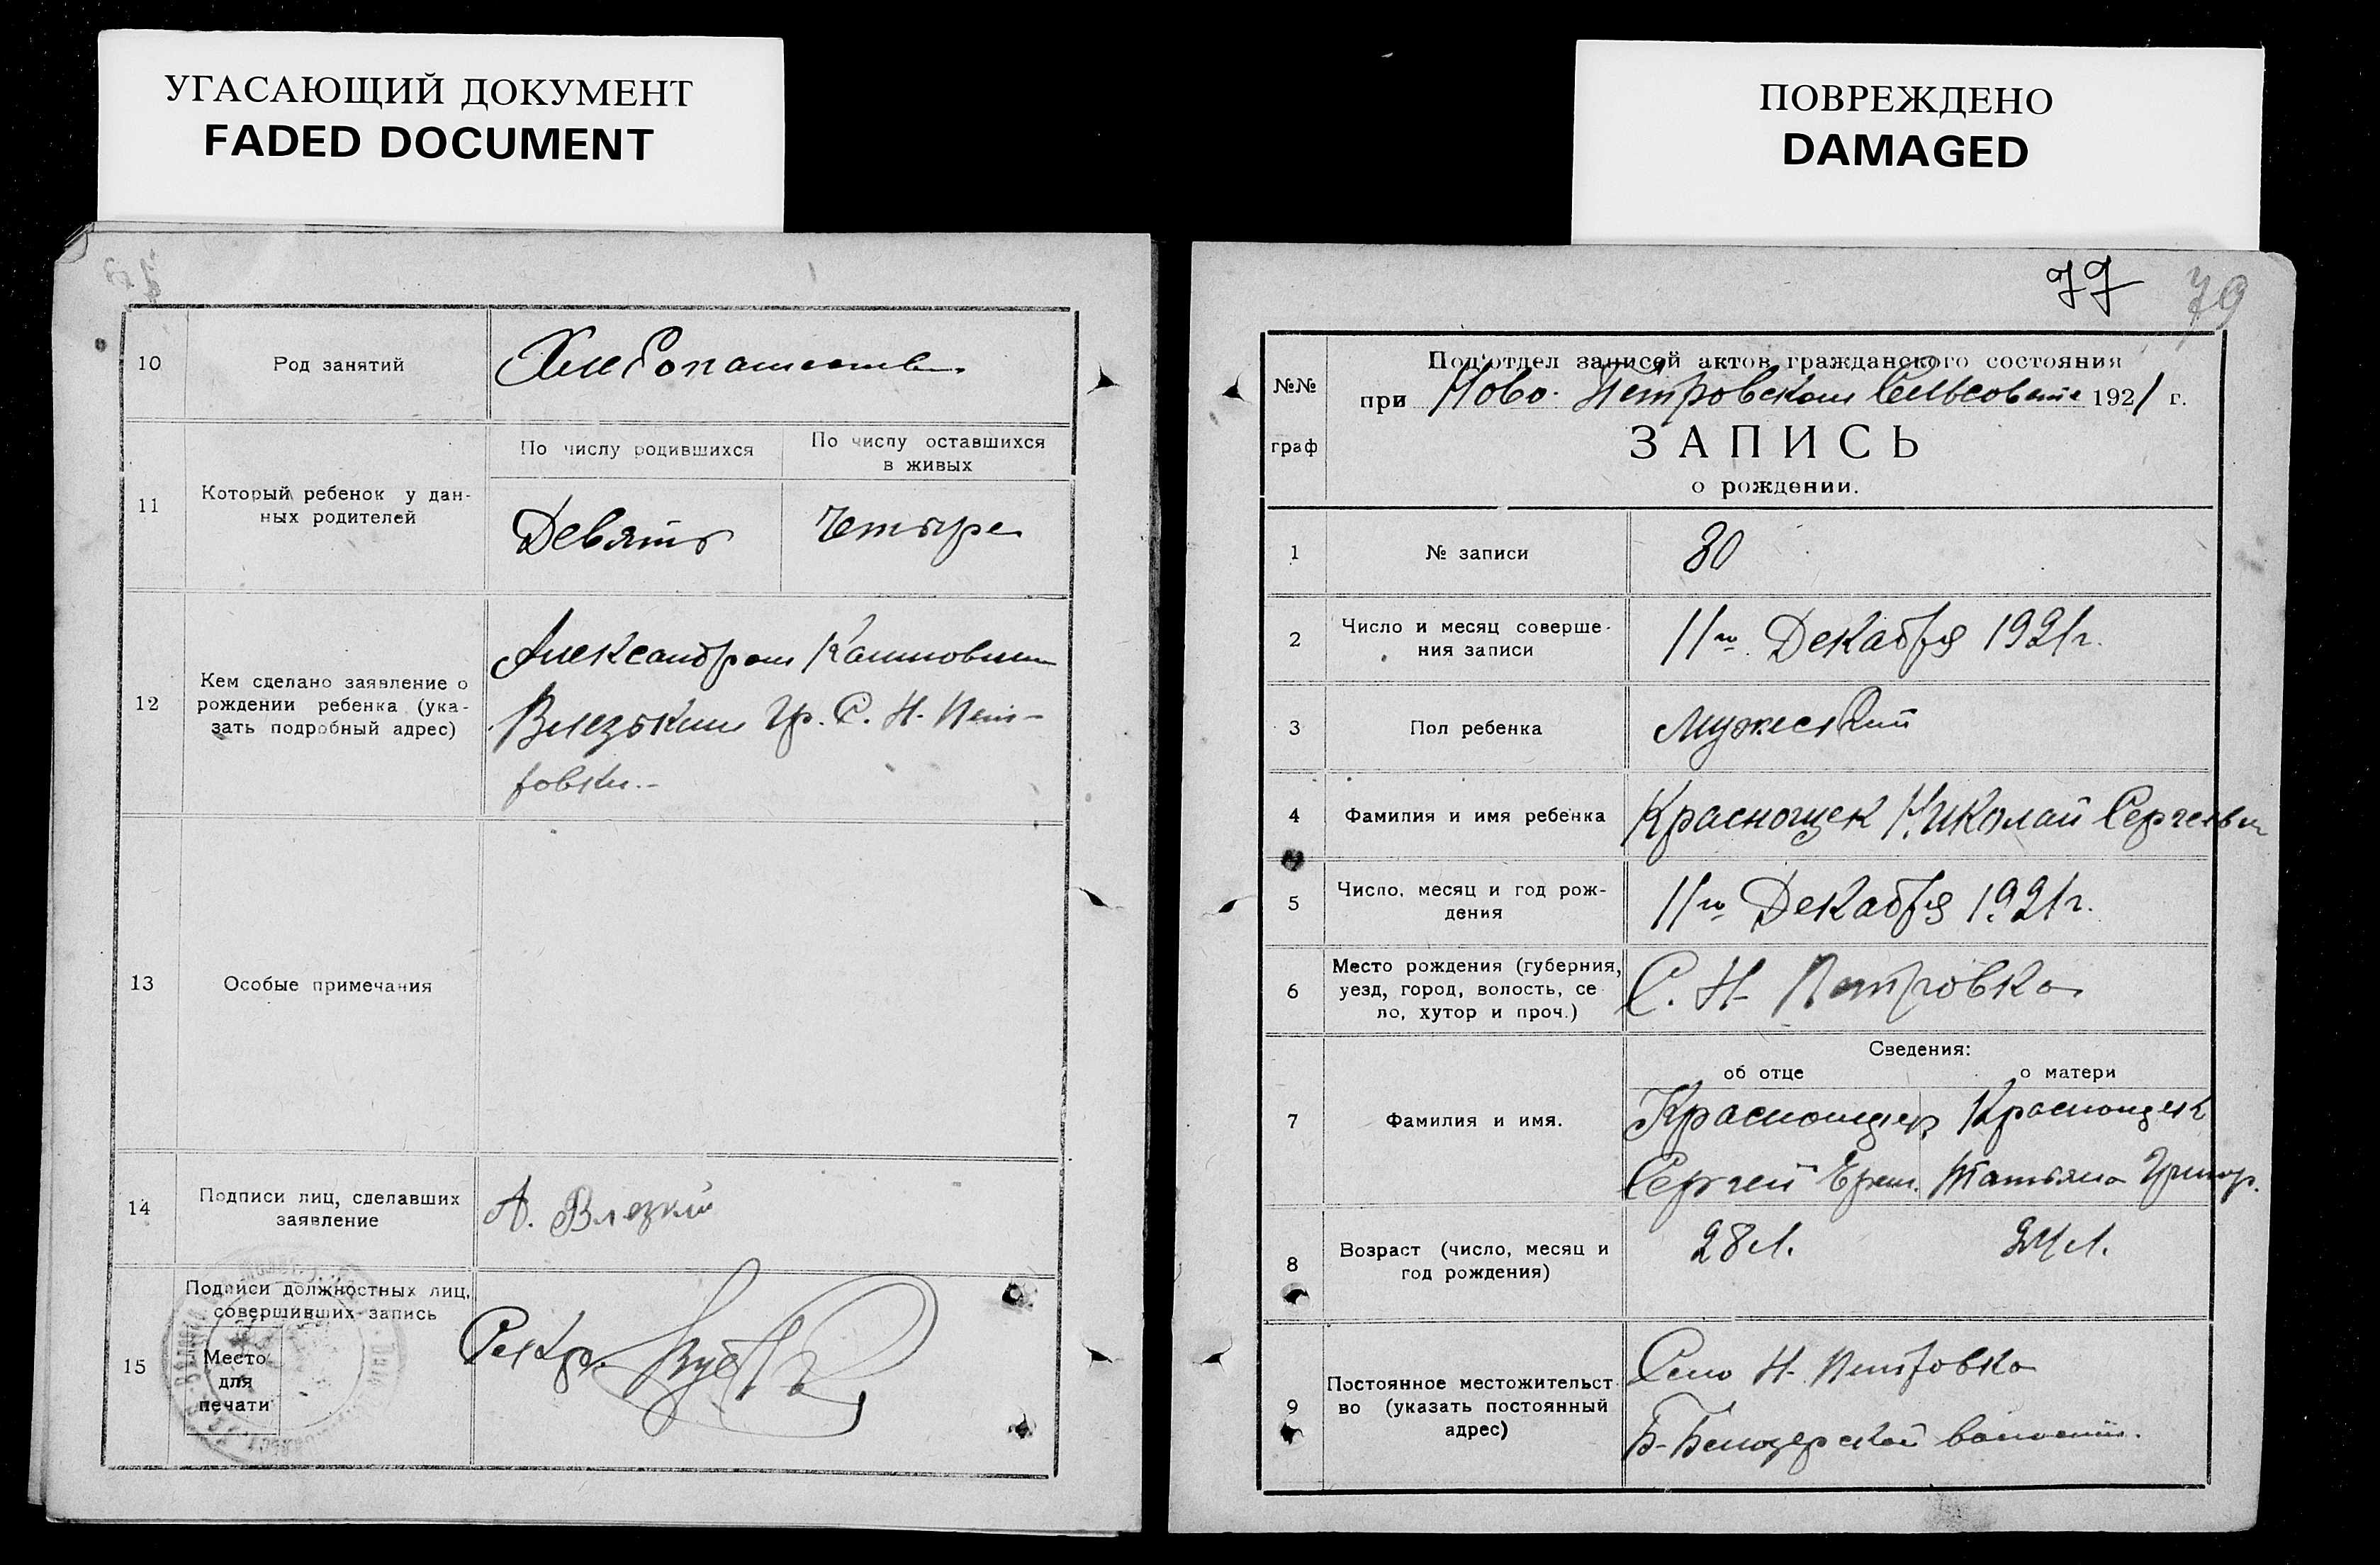 УГАСАЮЩИЙ ДОКУМЕНТ
FADED DOCUMENT
ПОВРЕЖДЕНО
DAMAGED
10 Род занятий Хлебопашеств
11 Который ребенок у дан-
ных родителей
По числу родившихся
По числу оставшихся
в живых
Девять
Четыре
12 Кем сделано заявление о
рождении ребенка (ука-
зать подробный адрес)
Александром
Влезьким Гр. С. Н. Пет-
ровки.-
13 Особые примечания
14 Подписи лиц, сделавших
заявление
А. Влезкий
15 Подписи должностных лиц,
совершивших запись
Место
для
печати
Секр.
77
79
№№
граф
Под'отдел записей актов гражданского состояния
при Ново-Петровском Сельсовете 1921 г.
ЗАПИСЬ
о рождении.
1 № записи 30
2 Число и месяц соверше-
ния записи
11го Декабря 1921г.
3 Пол ребенка Мужеский
4 Фамилия и имя ребенка Краснощек Николай Сергеевич
5 Число, месяц и год рож-
дения
11го Декабря 1921г.
6 Место рождения (губерния,
уезд, город, волость, се
ло, хутор и проч.)
С. Н-Петровка
Сведения:
об отце
о матери
7 Фамилия и имя.
Краснощек
Сергей Ерем.
Краснощек
Татьяна Григор.
8 Возраст (число, месяц и
год рождения)
28 л.
24 л.
9 Постоянное местожительст
во (указать постоянный
адрес)
Село Н-Петровка
Б-Белозерской волости.